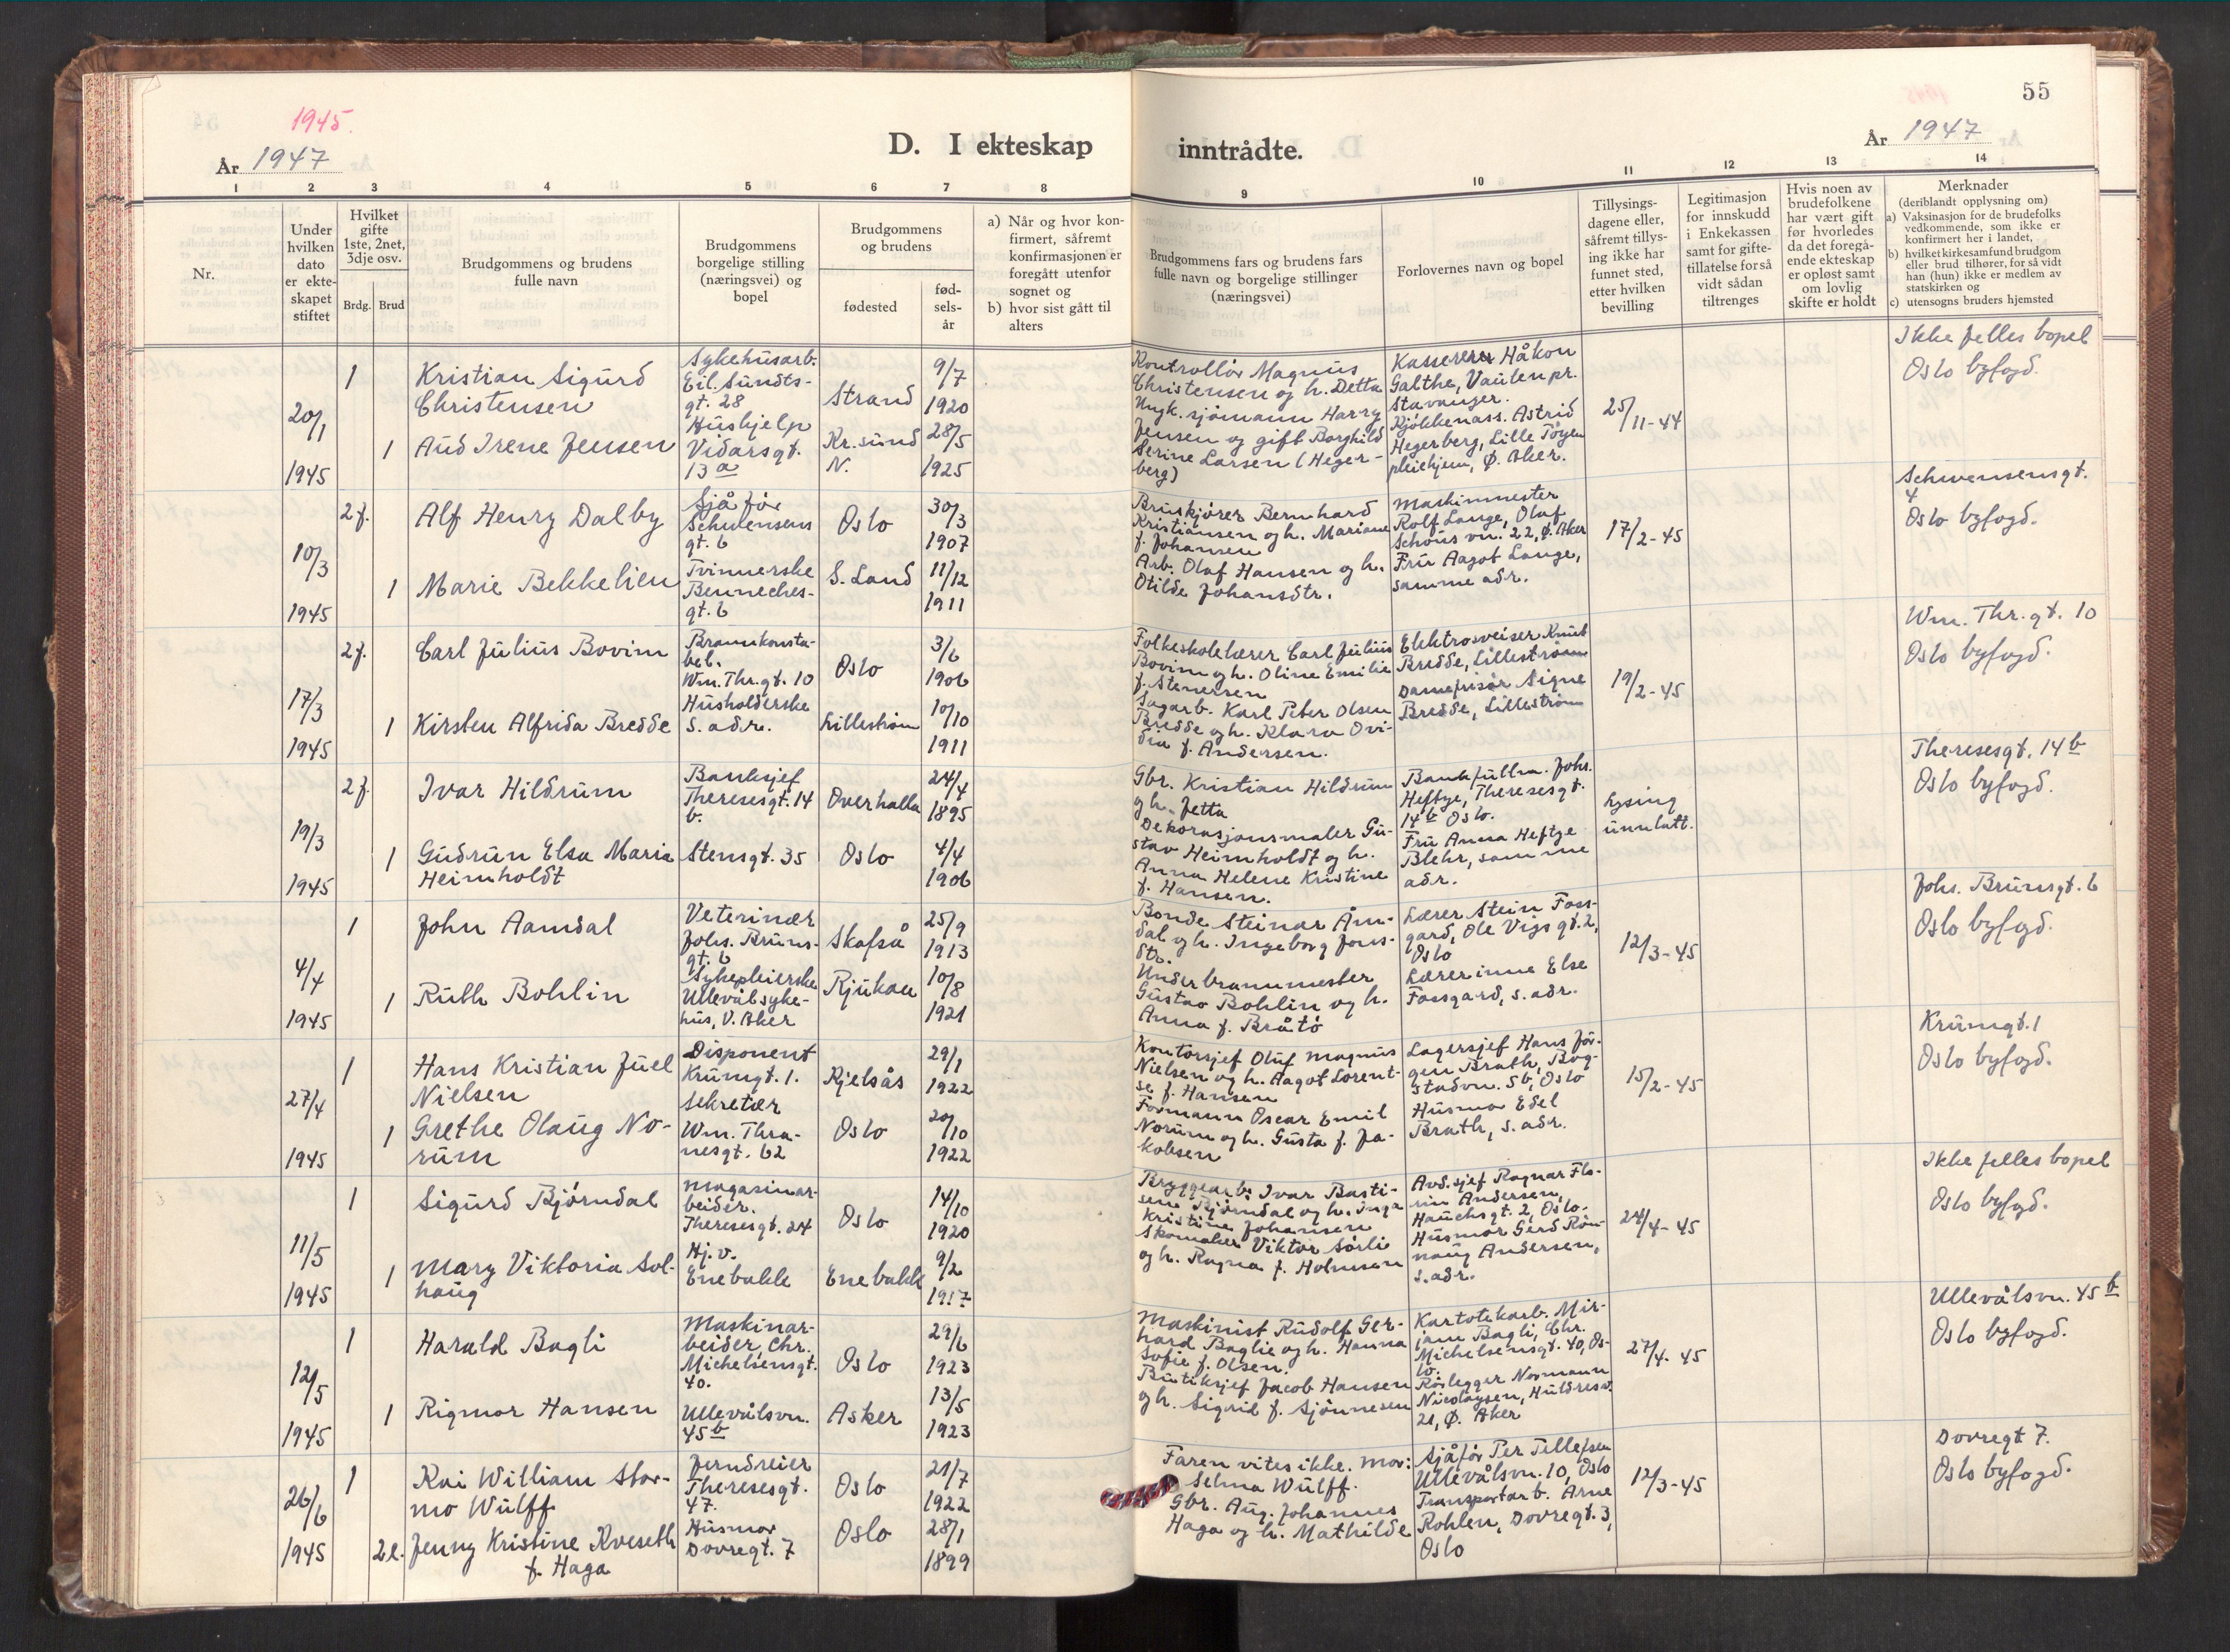 1945.
År 1947
D. I ekteskap
inntrådte.
År 1947
55
1
2
3
4
5
6
7
8
9
10
11
12
13
14
Nr.
Under
hvilken
dato
er ekte-
skapet
stiftet
Hvilket
gifte
1ste, 2net,
3dje osv.
Brdg.
Brud
Brudgommens og brudens
fulle navn
Brudgommens
borgelige stilling
(næringsvei) og
bopel
Brudgommens
og brudens
fødested
fød-
sels-
år
a) Når og hvor kon-
firmert, såfremt
konfirmasjonen er
foregått utenfor
sognet og
b) hvor sist gått til
alters
Brudgommens fars og brudens fars
fulle navn og borgelige stillinger
(næringsvei)
Forlovernes navn og bopel
Tillysings-
dagene eller,
såfremt tillys-
ing ikke har
funnet sted,
etter hvilken
bevilling
Legitimasjon
for innskudd
i Enkekassen
samt for gifte-
tillatelse forså
vidt sådan
tiltrenges
Hvis noen av
brudefolkene
har vært gift
før hvorledes
da det foregå-
ende ekteskap
er opløst samt
om lovlig
skifte er holdt
Merknader
(deriblandt opplysning om)
a) Vaksinasjon for de brudefolks
vedkommende, som ikke er
konfirmert her i landet,
b) hvilket kirkesamfund brudgom
eller brud tilhører, for så vidt
han (hun) ikke er medlem av
statskirken og
c) utensogns bruders hjemsted
20/1
1945
1
Kristian Sigurd
Christensen
1
Aud Irene Jensen
Sykehusarb.
Eil. Sundts-
gt. 28
Hushjelp
Vidarsgt.
13 a
Strand
Kr.sund
N.
9/7
1920
28/5
1925
Kontrollør Magnus
Christensen og h. Detta
Ungk. sjømann Harry
Jensen og gift Borghild
Serine Larsen (Heger-
berg)
Kasserer Håkon
Galthe, Vaulen pr.
Stavanger.
Kjøkkenass. Astrid
Hegerberg, Lille Tøyen
pleiehjem, Ø. Aker.
25/11-44
Ikke felles bopel
Oslo byfogd.
10/3
1945
2 f.
Alf Henry Dalby
1
Marie Bekkelien
Sjåfør
Schwensens
gt. 6
Tvinnerske
Benneches-
gt. 6
Oslo
S. Land
30/3
1907
11/12
1911
Bruskjører Bernhard
Kristiansen og h. Mariane
f. Johansen
Arb. Olaf Hansen og h.
Otilde Johansdtr.
Maskinmester
Rolf Lange, Olaf
Schous vn. 22, Ø. Aker
Fru Aagot Lange,
samme adr.
17/2-45
Schwensensgt.
4
Oslo byfogd.
17/3
1945
2 f.
Carl Julius Bovim
1
Kirsten Alfrida Bredde
Brannkonsta-
bel.
Wm. Thr.gt. 10
Husholderske
s. adr.
Oslo
Lillestrøm
3/6
1906
10/10
1911
Folkeskolelærer Carl Julius
Bovim og h. Oline Emilie
f. Stenersen
Sagarb. Karl Peter Olsen
Bredde og h. Klara Ovi-
dia f. Andersen.
Elektrosveiser Knut
Bredde, Lillestrøm
Damefrisør Signe
Bredde, Lillestrøm
19/2-45
Wm. Thr. gt. 10
Oslo byfogd.
19/3
1945
2 f.
Ivar Hildrum
1
Gudrun Elsa Maria
Heimholdt
Banksjef
Theresesgt. 14
b.
Stensgt. 35
Overhalla
Oslo
24/4
1895
4/4
1906
Gbr. Kristian Hildrum
og h. Jetta
Dekorasjonsmaler Gu-
stav Heimholdt og h.
Anna Helene Kristine
f. Hansen.
Bankfullm. Johs.
Heftye, Theresesgt.
14 b Oslo.
Fru Anna Heftye
Blehr, samme
adr.
Lysing
unnlatt.
Theresesgt. 14 b
Oslo byfogd.
4/4
1945
1
John Aamdal
1
Ruth Bohlin
Veterinær
Johs. Bruns-
gt. 6
Sykepleierske
Ullevål syke-
hus, V. Aker
Skafså
Rjukan
25/9
1913
10/8
1921
Bonde Steinar Åm-
dal og h. Ingeborg Jons-
dtr.
Underbrannmester
Gustav Bohlin og h.
Anna f. Bråtø
Lærer Stein Foss-
gard, Ole Vigs gt. 2,
Oslo
Lærerinne Else
Fossgard, s. adr.
12/3-45
Johs. Brunsgt. 6
Oslo byfogd.
27/4
1945
1
Hans Kristian Juel
Nielsen
1
Grethe Olaug No-
rum
Disponent
Krumgt. 1.
Sekretær
Wm. Thra-
nesgt. 62
Kjelsås
Oslo
29/1
1922
20/10
1922
Kontorsjef Oluf Magnus
Nielsen og h. Aagot Lorent-
se f. Hansen
Formann Oscar Emil
Norum og h. Gusta f. Ja-
kobsen
Lagersjef Hans Jør-
gen Brath, Bog-
stadvn. 5b, Oslo
Husmor Edel
Brath, s. adr.
15/2-45
Krumgt. 1
Oslo byfogd.
11/5
1945
1
Sigurd Bjørndal
1
Mary Viktoria Sol-
haug
Magasinar-
beider.
Theresesgt. 24
Hj.v.
Enebakk
Oslo
Enebakk
14/10
1920
9/2
1917
Bryggearb. Ivar Basti-
sen Bjørndal og h. Inga
Kristine Johansen
Skomaker Viktor Sørli
og h. Ragna f. Holmsen
Avd.sjef Ragnar Flo-
rin Andersen,
Hauchsgt. 2, Oslo.
Husmor Gerd Røn-
naug Andersen,
s. adr.
24/4-45
Ikke felles bopel
Oslo byfogd.
12/5
1945
1
Harald Bagli
1
Rigmor Hansen
Maskinar-
beider, Chr.
Michelsensgt.
40.
Ullevålsvn.
45 b
Oslo
Asker
29/6
1923
13/5
1923
Maskinist Rudolf Ger-
hard Baglie og h. Hanna
Sofie f. Olsen.
Butiksjef Jacob Hansen
og h. Sigrid f. Sjønnesen
Kartotekarb. Mir-
jam Bagli, Chr.
Michelsensgt. 40, Os-
lo.
Rørlegger Normann
Nicolaysen, Huldresv.
21, Ø. Aker
27/4-45
Ullevålsvn. 45 b
Oslo byfogd.
26/6
1945
1
Kai William Stor-
mo Wulff
2 e.
Jenny Kristine Kveseth
f. Haga
Jerndreier
Theresesgt.
47.
Husmor
Dovregt. 7
Oslo
Oslo
21/7
1922
28/1
1899
Faren vites ikke. Mor:
Selma Wulff.
Gbr. Aug. Johannes
Haga og h. Mathilde
Sjåfør Per Tellefsen
Ullevålsvn. 10, Oslo
Transportarb. Arne
Rohlen, Dovregt. 3,
Oslo
12/3-45
Dovregt 7.
Oslo byfogd.